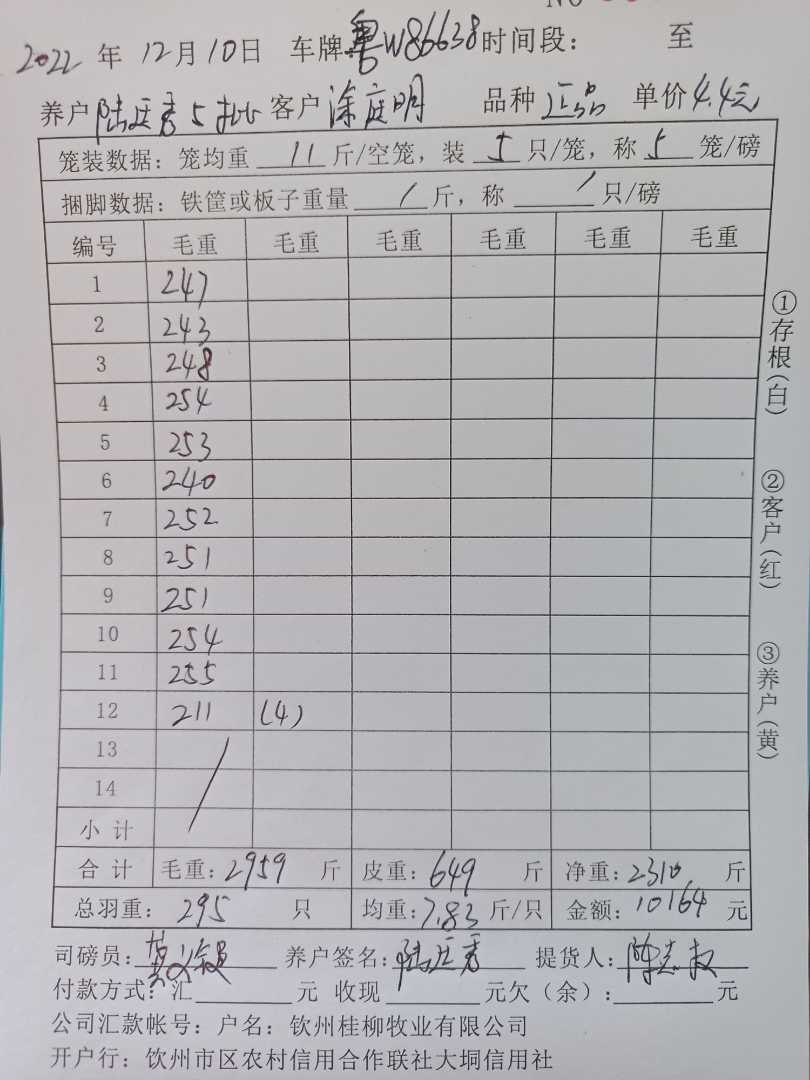 NO
2022 年 12月10日 车牌:粤W86638时间段: 至
养户 陆廷秀5批 客户 涂庭明 品种 正品 单价4.4元
笼装数据: 笼均重 11 斤/空笼, 装 5 只/笼, 称 5 笼/磅
捆脚数据: 铁筐或板子重量 / 斤, 称 / 只/磅
编号 毛重 毛重 毛重 毛重 毛重 毛重
1 247
2 243
3 248
4 254
5 253
6 240
7 252
8 251
9 251
10 254
11 255
12 211 (4)
13
14
小 计
合 计 毛重: 2959 斤 皮重: 649 斤 净重: 2310 斤
总羽重: 295 只 均重: 7.83 斤/只 金额: 10164 元
司磅员: 养户签名: 陆廷秀 提货人: 陈志
付款方式: 汇 元 收现 元欠(余): 元
公司汇款帐号: 户名: 钦州桂柳牧业有限公司
开户行: 钦州市区农村信用合作联社大垌信用社
①存根(白)
②客户(红)
③养户(黄)